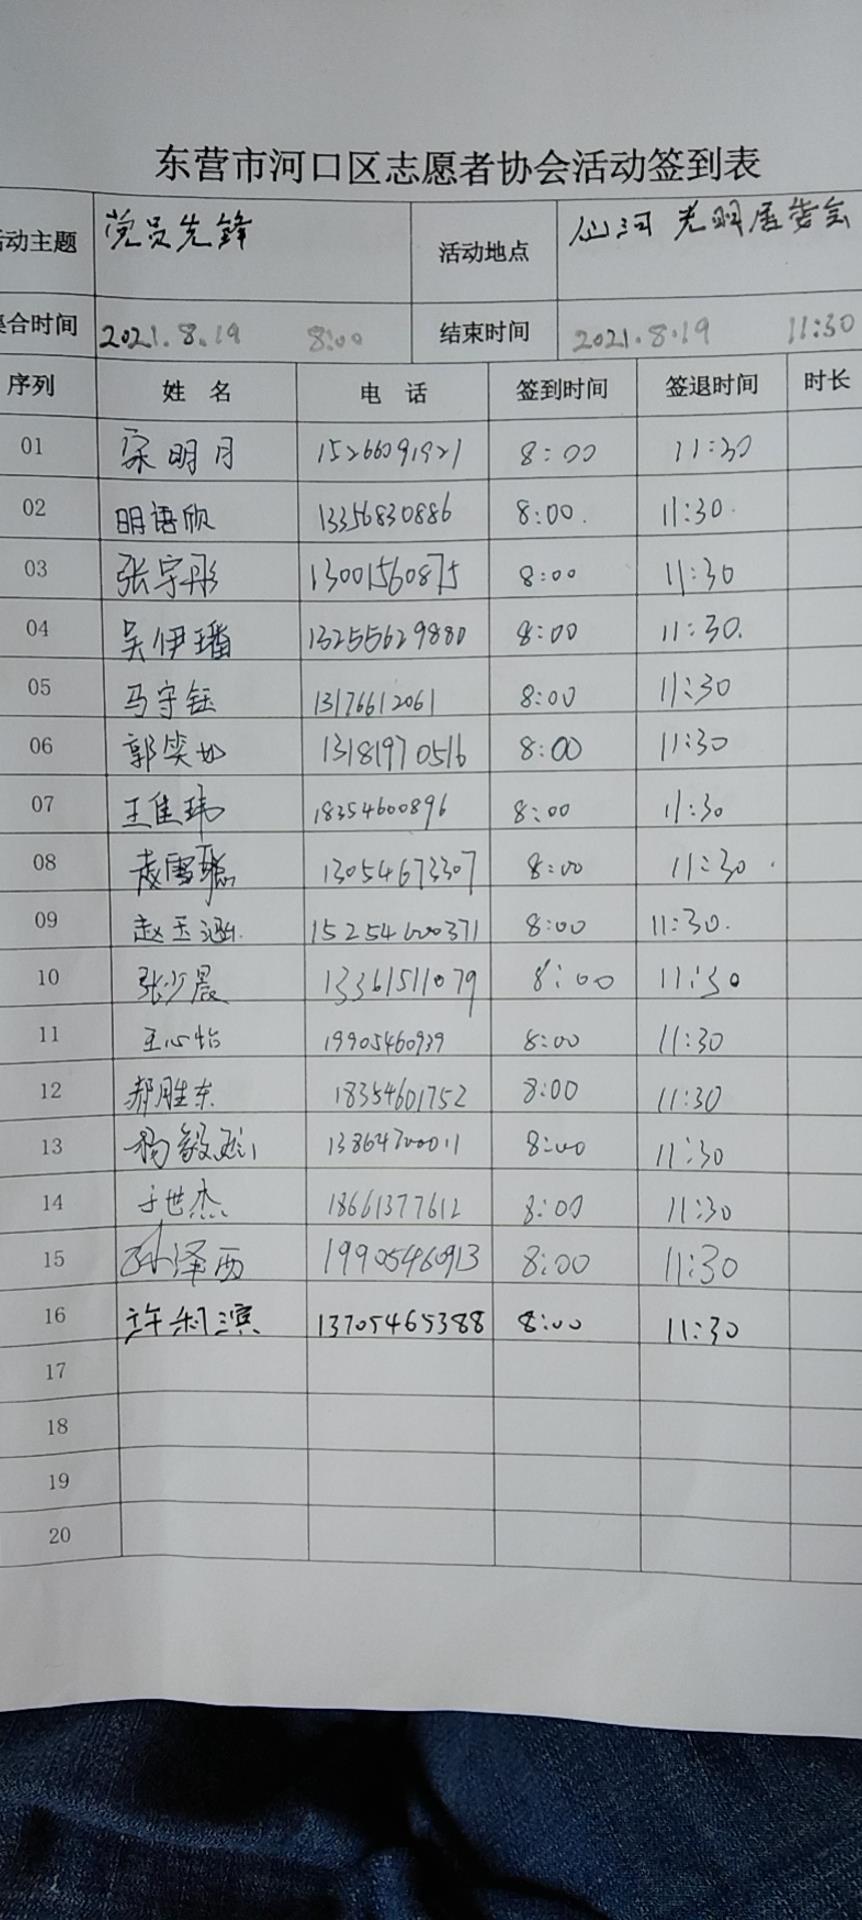 东营市河口区志愿者协会活动签到表
动主题 党员先锋 活动地点 仙河 光明居委会
合时间 2021.8.19 8:00 结束时间 2021.8.19 11:30
序列 姓 名 电 话 签到时间 签退时间 时长
01 宋明月 15266091921 8:00 11:30
02 明语欣 13356830886 8:00. 11:30.
03 张宇彤 13001560875 8:00 11:30
04 吴伊璠 13255629880 8:00 11:30.
05 马守钰 13176612061 8:00 11:30
06 郭笑如 13181970516 8:00 11:30
07 王佳玮 18354600896 8:00 11:30
08 13054673307 8:00 11:30.
09 赵玉涵. 15254600371 8:00 11:30.
10 张少晨 13361511079 8:00 11:30
11 王心怡 19905460939 8:00 11:30
12 郝胜东 18354601752 8:00 11:30
13 杨毅 13864700011 8:00 11:30
14 于世杰 18661377612 8:00 11:30
15 孙泽西 19905460913 8:00 11:30
16 许利滨 13705465388 8:00 11:30
17
18
19
20